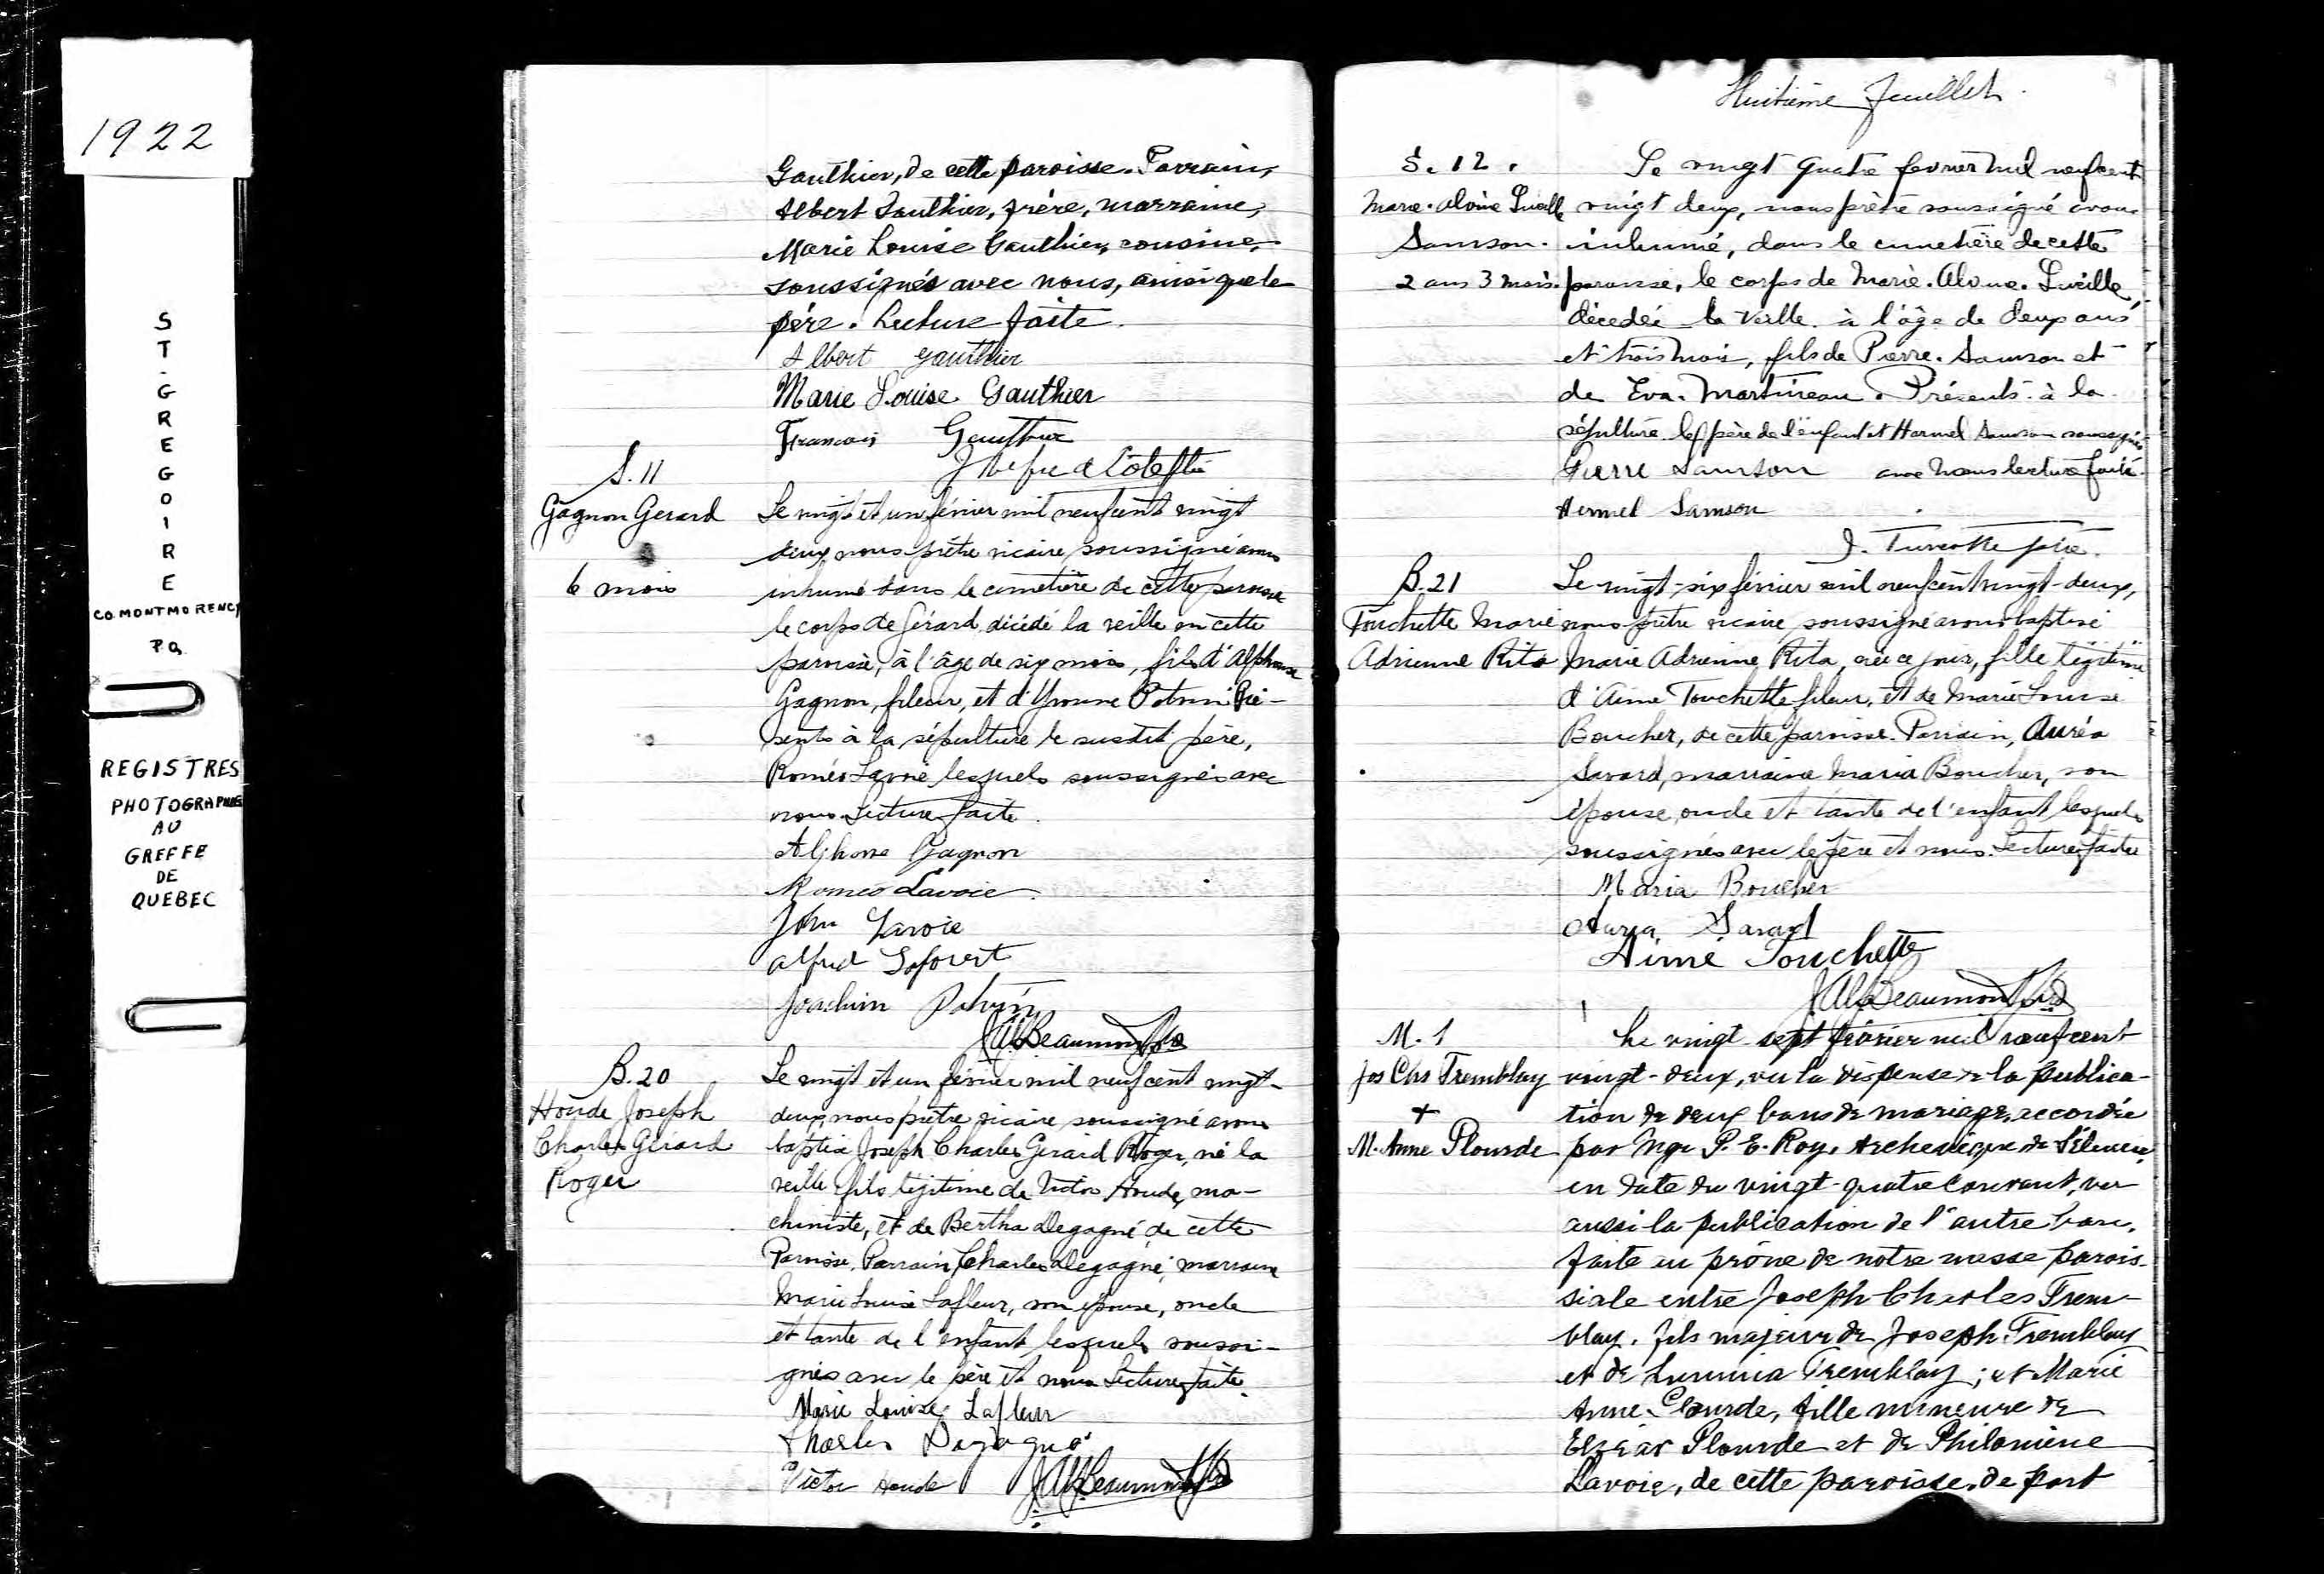 1922
ST. GREGOIRE
CO. MONTMORENCY
P.Q.
REGISTRES
PHOTOGRAPHIES
AU
GREFFE
DE
QUEBEC
Gauthier, de cette paroisse. Parrain,
Albert Gauthier, frère, marraine,
Marie Louise Gauthier, cousine,
soussignés avec nous, ainsi que le
père. Lecture faite.
Albert Gauthier
Marie Louise Gauthier
Francois Gauthier
S. 11
Gagnon Gerard
6 mois
Le vingt et un février mil neuf cent vingt
deux, nous prêtre vicaire, soussigné avons
inhumé dans le cimetière de cette paroisse
le corps de Gérard, décédé la veille en cette
paroisse, à l'âge de six mois, fils d'Alphonse
Gagnon, fileur, et d'Yvonne Potvin. Pré-
sents à la sépulture le susdit père,
Roméo Lavoie lesquels soussignés avec
nous. Lecture faite.
Alphonse Gagnon
Romeo Lavoie
John Lavoie
Alfred Laforest
Joachim Potvin
J Alf Beaumont ptre
B. 20
Houde Joseph
Charles Gérard
Roger
Le vingt et un février mil neuf cent vingt-
deux, nous prêtre vicaire soussigné avons
baptisé Joseph Charles Gérard Roger, né la
veille fils légitime de Victor Houde, ma-
chiniste, et de Bertha Degagné de cette
Paroisse. Parrain, Charles Degagné, marraine
Marie Louise Lafleur, son épouse, oncle
et tante de l'enfant lesquels soussi-
gnés avec le père et nous. Lecture faite.
Marie Louise Lafleur
Charles Degagné
Victor Houde J Alf Beaumont ptre
Huitième Juillet.
S. 12.
Marie. Alvine Lucille
Samson.
2 ans 3 mois.
Le vingt quatre fevrier mil neuf cent
vingt deux, nous prêtre soussigné avons
inhumé, dans le cimetière de cette
paroisse, le corps de Marie. Alvine. Lucille,
décedée la veille à l'âge de deux ans
et trois mois, fils de Pierre. Samson et
de Eva. Martineau. Présents à la
sépulture le père de l'enfant et Hermel Samson soussignés
Pierre Samson avec nous lecture faite.
Hermel Samson
J. Turcotte ptre.
B. 21
Touchette Marie
Adrienne Rita
Le vingt-six février mil neuf cent vingt-deux,
nous prêtre vicaire, soussigné avons baptisé
Marie Adrienne Rita, née ce jour, fille légitime
d'Aimé Touchette fileur, et de Marie Louise
Boucher, de cette paroisse. Parrain, Auréa
Savard, marraine Maria Boucher, son
épouse, oncle et tante de l'enfant lesquels
soussignés avec le père et nous. Lecture faite
Maria Boucher
Aurea Savard
Aimé Touchette
J Alf Beaumont ptre
M. 1
Jos Chs Tremblay
+
M. Anne Plourde
Le vingt-sept février mil neuf cent
vingt-deux, vu la dispense de la publica-
tion de deux bans de mariage, accordée
par Mgr P. E. Roy, Archevêque de Séleucie,
en date du vingt-quatre courant, vu
aussi la publication de l'autre ban,
faite au prône de notre messe parois-
siale entre Joseph Charles Trem-
blay, fils majeur de Joseph Tremblay
et de Tremblay; et Marie
Anne Plourde, fille mineure de
Elzéar Plourde et de Philomène
Lavoie, de cette paroisse, de part